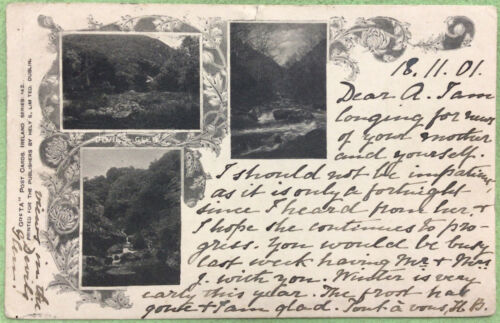 18.11.01.
Dear A. I am
longing for news
of your mother
and yourself.
I should not be impatient
as it is only a fortnight
since I heard from her. +
I hope she continues to pro-
gress. You would be busy
last week having Mr + Mrs
J. with you. Winter is very
early this year. The frost has
gone + I am glad. Tout à vous, H.B.
DEVIL'S GLEN
POST CARDS. IRELAND SERIES.
PRINTED FOR THE PUBLISHERS BY HELY'S, LIMITED, DUBLIN.
view in the
Devil's
Glen